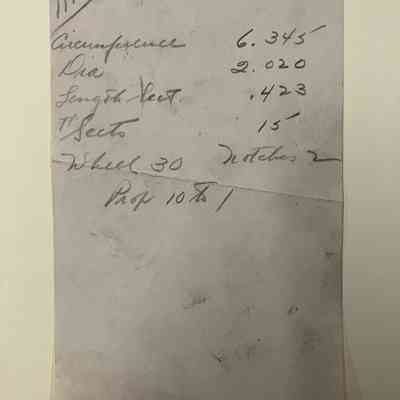 Circumference 6.345
Dia 2.020
Length Sect. .423
" Sects 15
Wheel 30 Notches 2
Prop 10 to 1